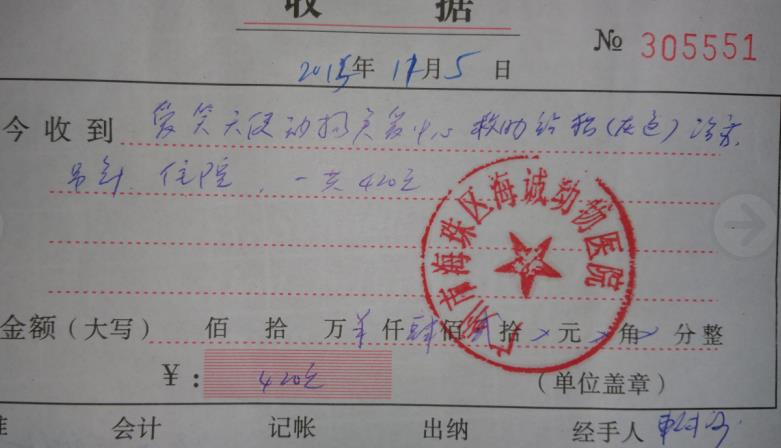 收 据
№ 305551
2015年 11月 5 日
今收到 爱笑天使动物关爱中心救助给猫(灰色)治疗
吊针、住院,一共420元
金额(大写) 佰 拾 万 仟肆佰贰拾 元 角 分整
¥: 420元
(单位盖章)
广州市海珠区海诚动物医院
会计 记帐 出纳 经手人